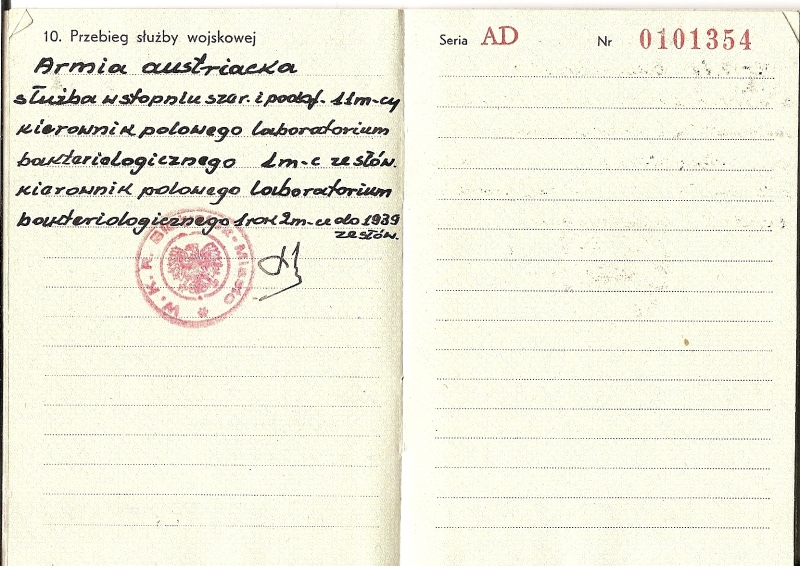 10. Przebieg służby wojskowej
Armia austriacka
służba w stopniu szer. i podof. 11 m-cy
kierownik polowego laboratorium
bakteriologicznego 1 m-c ze słów.
kierownik polowego laboratorium
bakteriologicznego 1 rok 2 m-ce do 1939
ze słów.
W.K.R. Miasto
Seria AD Nr 0101354